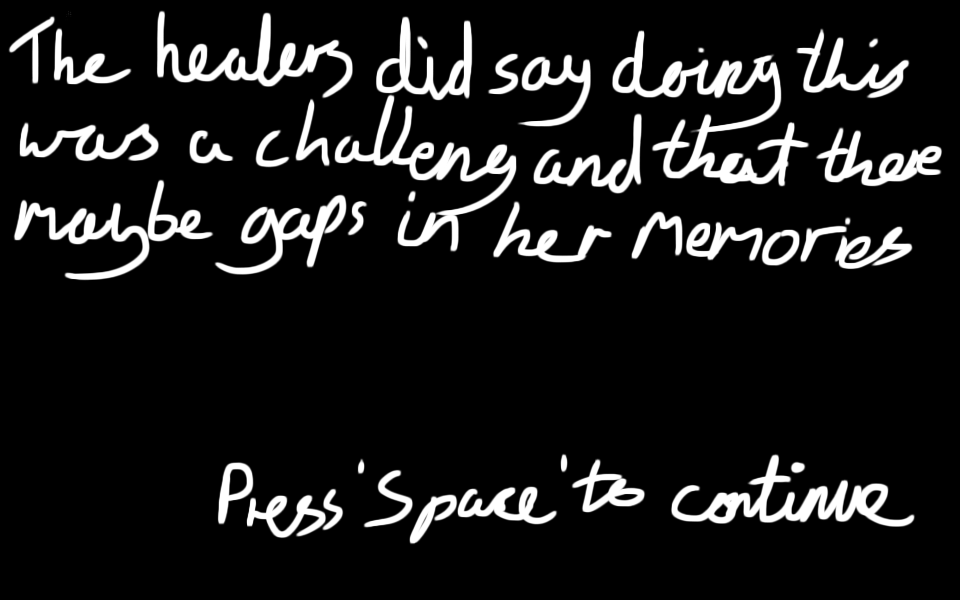 The healers did say doing this
was a challeng and that there
maybe gaps in her Memories
Press 'Space' to continue